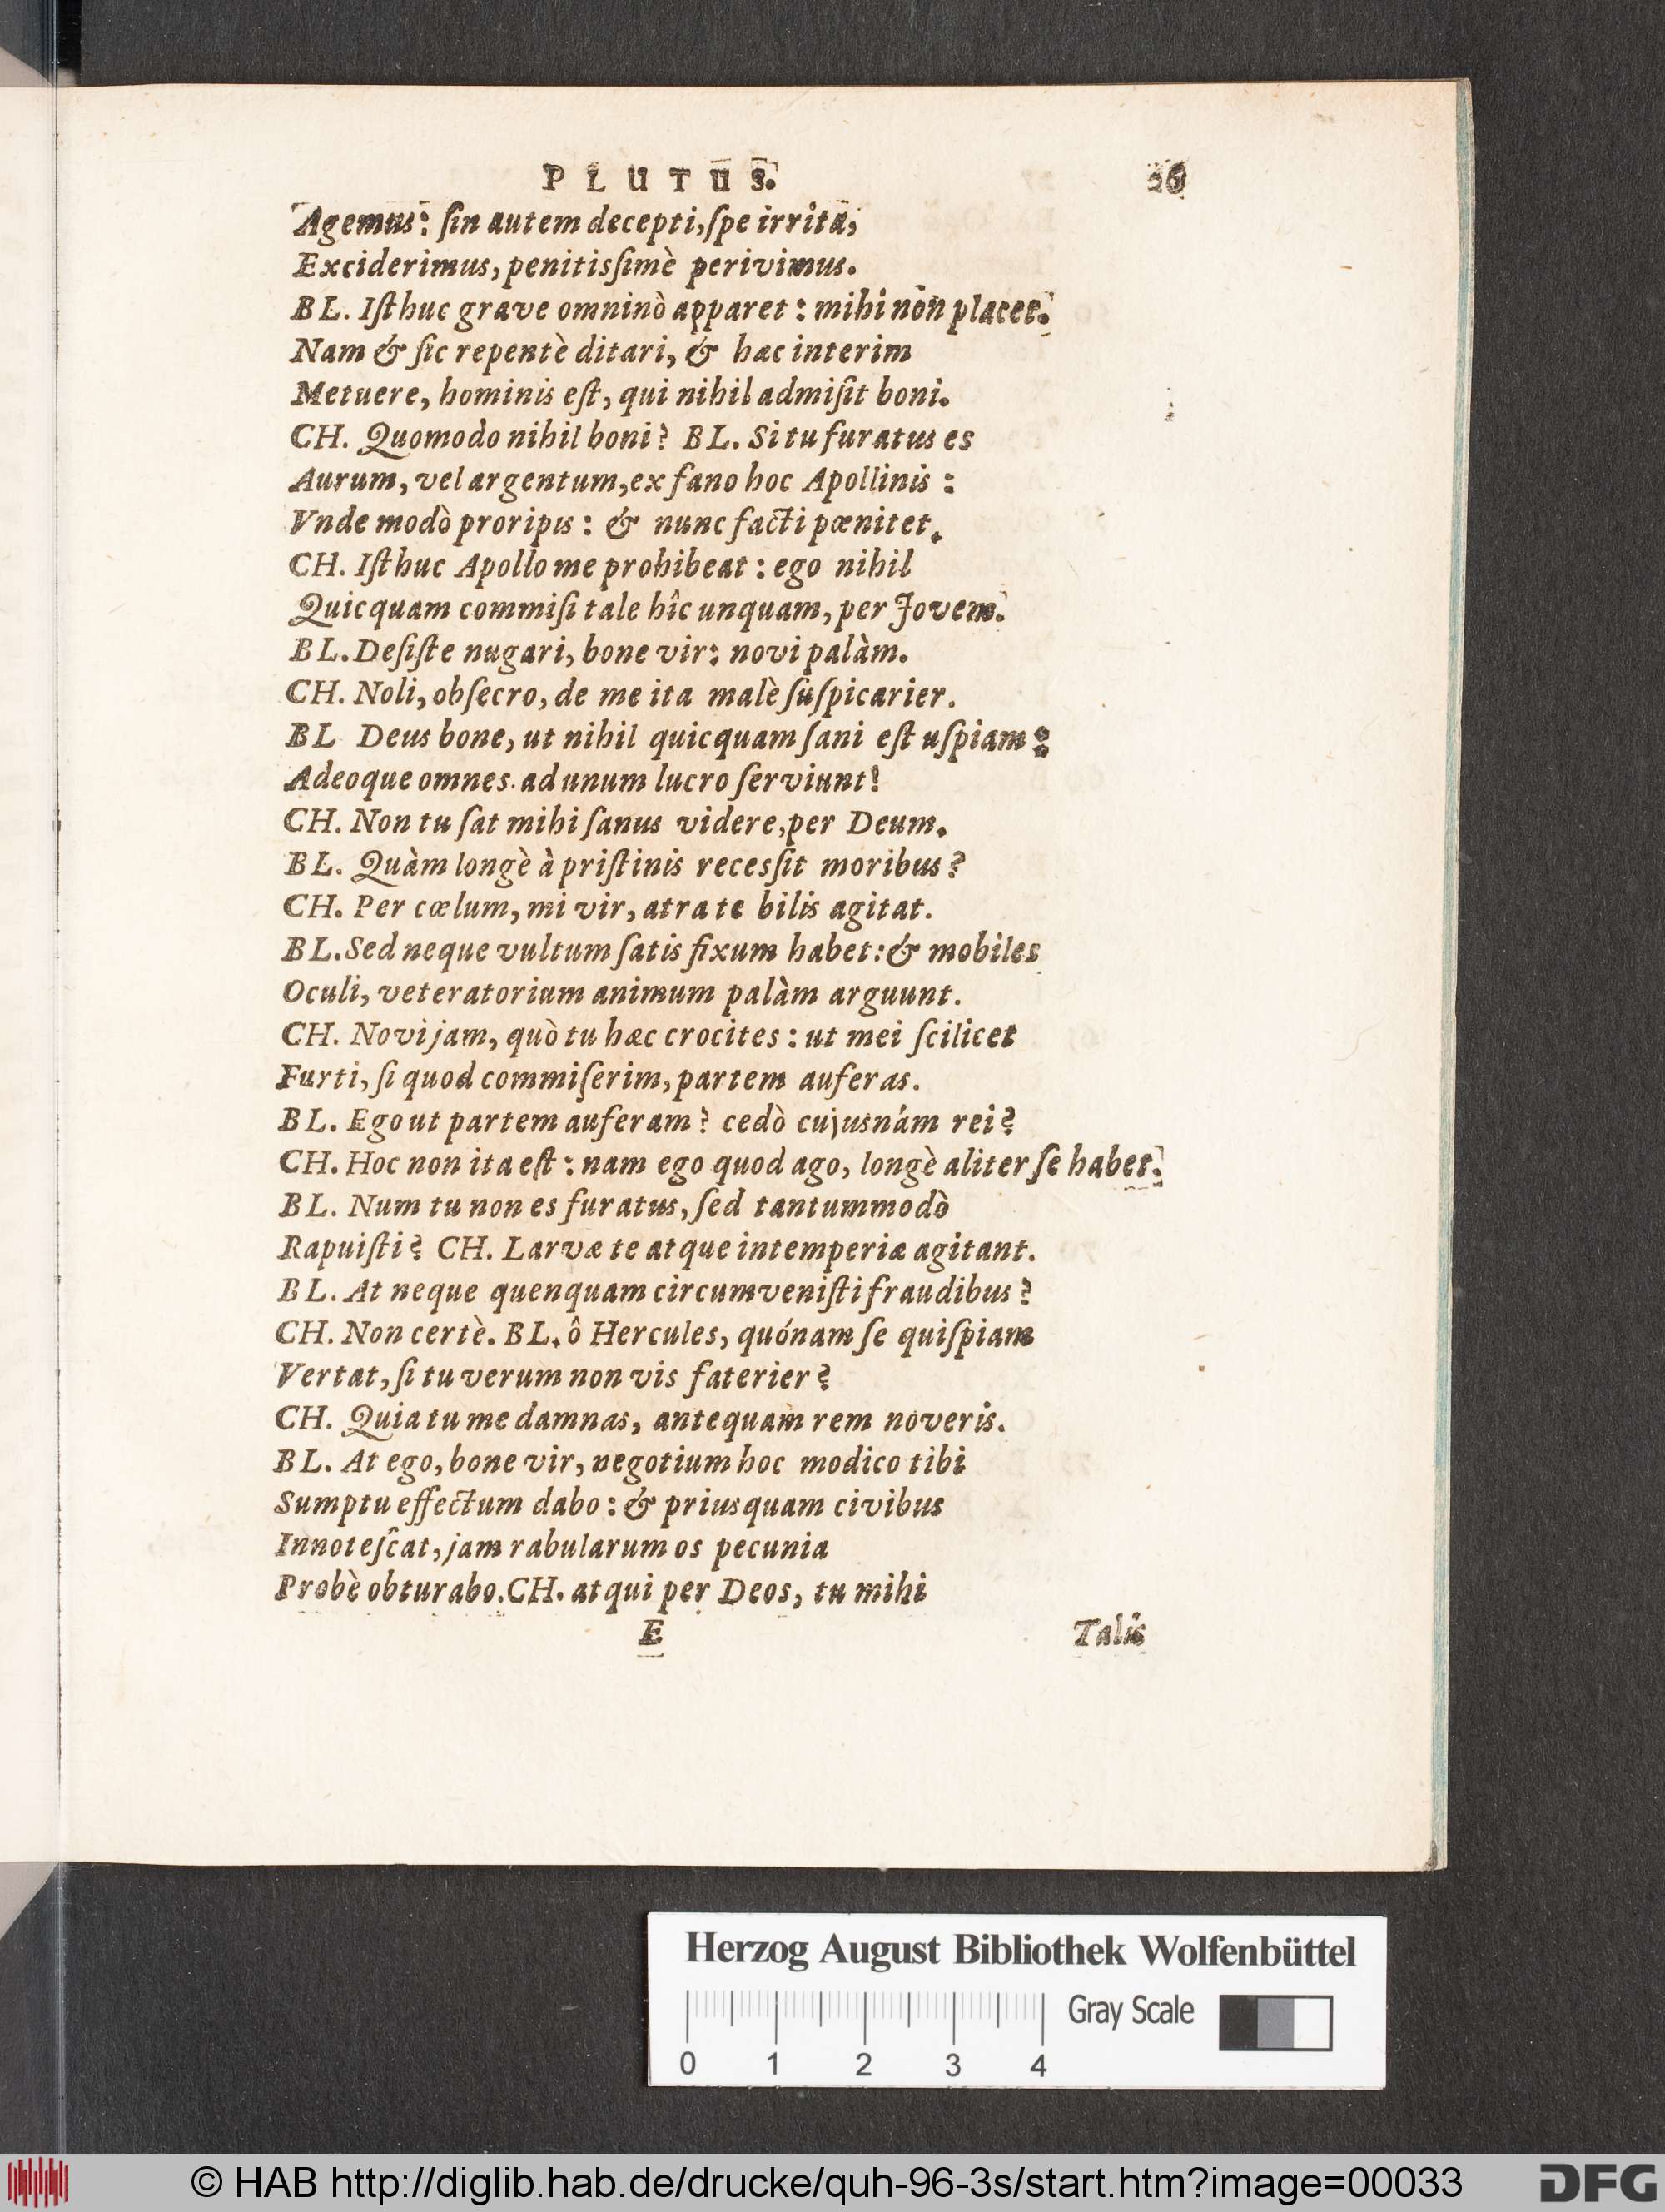 PLUTUS. 26
Agemus: ſin autem decepti, ſpe irrita,
Exciderimus, penitisſimè perivimus.
BL. Iſthuc grave omninò apparet: mihi non placet.
Nam & ſic repentè ditari, & hæc interim
Metuere, hominis eſt, qui nihil admiſit boni.
CH. Quomodo nihil boni? BL. Si tu furatus es
Aurum, vel argentum, ex fano hoc Apollinis:
Vnde modò proripis: & nunc facti pœnitet.
CH. Iſthuc Apollo me prohibeat: ego nihil
Quicquam commiſi tale hîc unquam, per Jovem.
BL. Deſiſte nugari, bone vir: novi palàm.
CH. Noli, obſecro, de me ita malè ſuſpicarier.
BL Deus bone, ut nihil quicquam ſani eſt uſpiam:
Adeoque omnes ad unum lucro ſerviunt!
CH. Non tu ſat mihi ſanus videre, per Deum.
BL. Quàm longè à priſtinis recesſit moribus?
CH. Per cœlum, mi vir, atra te bilis agitat.
BL. Sed neque vultum ſatis fixum habet: & mobiles
Oculi, veteratorium animum palàm arguunt.
CH. Novi jam, quò tu hæc crocites: ut mei ſcilicet
Furti, ſi quod commiſerim, partem auferas.
BL. Ego ut partem auferam? cedò cujusnám rei?
CH. Hoc non ita eſt: nam ego quod ago, longè aliter ſe habet.
BL. Num tu non es furatus, ſed tantummodò
Rapuiſti? CH. Larvæ te atque intemperiæ agitant.
BL. At neque quenquam circumveniſti fraudibus?
CH. Non certè. BL. ô Hercules, quónam ſe quiſpiam
Vertat, ſi tu verum non vis faterier?
CH. Quia tu me damnas, antequàm rem noveris.
BL. At ego, bone vir, negotium hoc modico tibi
Sumptu effectum dabo: & priusquam civibus
Innoteſcat, jam rabularum os pecunia
Probè obturabo. CH. atqui per Deos, tu mihi
E Talis
Herzog August Bibliothek Wolfenbüttel
Gray Scale
0 1 2 3 4
© HAB http://diglib.hab.de/drucke/quh-96-3s/start.htm?image=00033
DFG